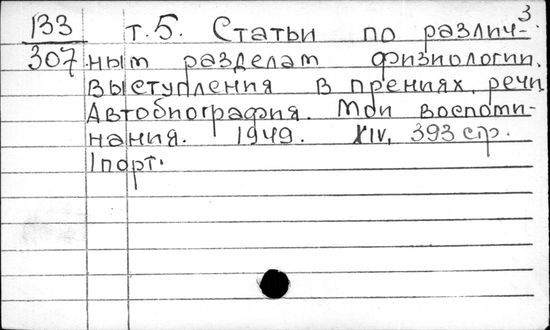 3.
133 т.5. Статьи по различ-
307 ным разделам физиологии.
Выступления в прениях, речи
Автобиография. Мои воспоми-
нания. 1949. XIV, 393 стр.
1 порт.